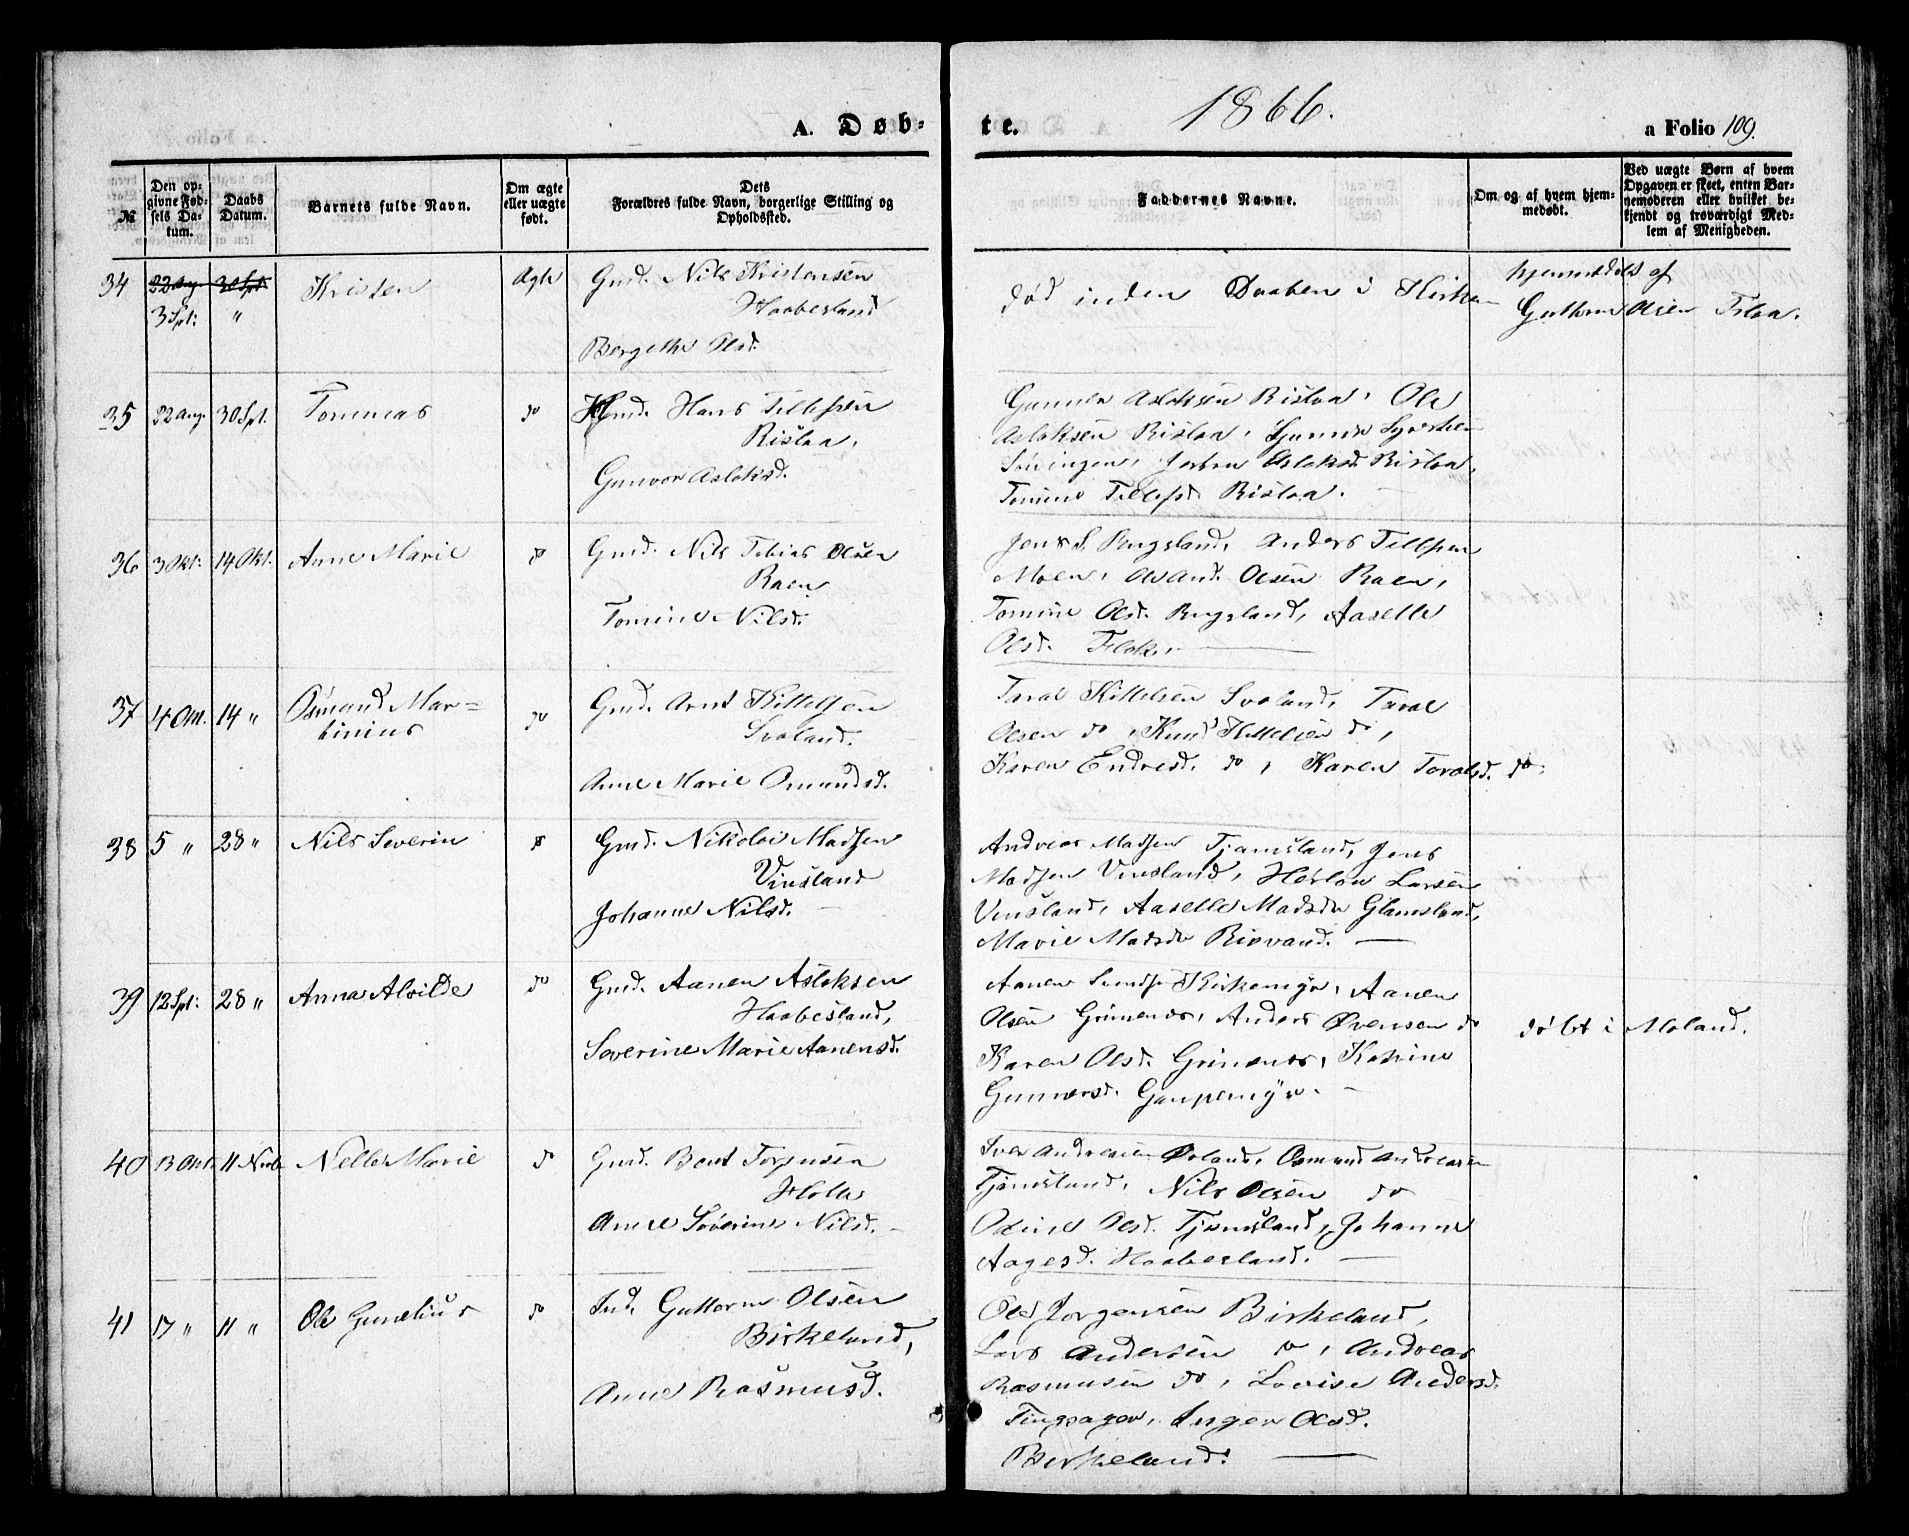 A. Døb-
te.
1866.
a Folio 109.
№
Den op-
givne Fød-
sels Da-
tum.
Daabs
Datum.
Barnets fulde Navn.
Om ægte
eller uægte
født.
Dets
Forældres fulde Navn, borgerlige Stilling og
Opholdssted.
Faddernes Navne.
Om og af hvem hjem-
medøbt.
Ved uægte Børn af hvem
Opgaven er skeet, enten Bar-
nemoderen eller hvilket be-
kjendt og troværdigt Med-
lem af Menigheden.
34
22 Aug.
30 Spt.
3 Spt:
"
Kristen
Ægte
Gmd. Nils Kristensen
Haabesland
Bergethe Olsd.
død inden Daaben i Kirken
hjemmedøbt af
Guttorm Olsen Filoa.
35
22 Aug.
30 Spt.
Tommas
do
Gmd. Hans Tellefsen
Risloa,
Gunvor Asloksd.
Gunner Asloksen Risloa, Ole
Asloksen Risloa,
Asloksd. Risloa,
Tomine Tellefsd. Risloa.
36
3 Okt:
14 Okt.
Anne Marie
do
Gmd. Nils Tobias Olsen
Raen
Tomine Nilsd.
Jens S. Bugsland, Anders Tellefsen
Moen, Olsen Raen,
Tomine Olsd. Bugsland, Aaselle
Olsd. Flak.
37
4 Om.
14 "
Osmund Mar-
tinius
do
Gmd. Arnt Kittelsen
Svaland.
Anne Marie Omundsd.
Taral Kittelsen Svaland, Taral
Olsen do, Knud Kittelsen do,
Karen Endresd. do, Karen Toralsd. do.
38
5 "
28 "
Nils Severin
do
Gmd. Nikolai Madsen
Vinsland
Johanne Nilsd.
Andreas Madsen Tjamsland, Jens
Madsen Vinsland, Herlou Larsen
Vinsland, Aaselle Madsdr Glamsland,
Marie Madsdr Risvand.
39
12 Spt:
28 "
Anna Alvilde
do
Gmd. Aanen Asloksen
Haabesland,
Severine Marie Aanensd.
Aanen Svendsen Kirkemyr, Aanen
Olsen Grimenes, Anders Evensen do
Karen Olsd. Grimenes, Katrine
Gunnersd. Gaupemyr.
døbt i Moland.
40
13 Okt.
11 Novb.
Nelle Marie
do
Gmd. Bent Torjusen
Holte
Anne Severine Nilsd.
Iver Andreasen Øvland, Osmund Andreasen
Tjamsland, Nils Olsen do
Oline Olsd. Tjamsland, Johanne
Aagesd. Haabesland.
41
17 "
11 "
Ole Gunelius
do
Ind. Guttorm Olsen
Birkeland,
Anne Rasmusd.
Ole Jørgensen Birkeland,
Lars Andersen do, Andreas
Rasmusen do, Lovise Andersd.
Tingsager, Inger Olsd.
Birkeland.